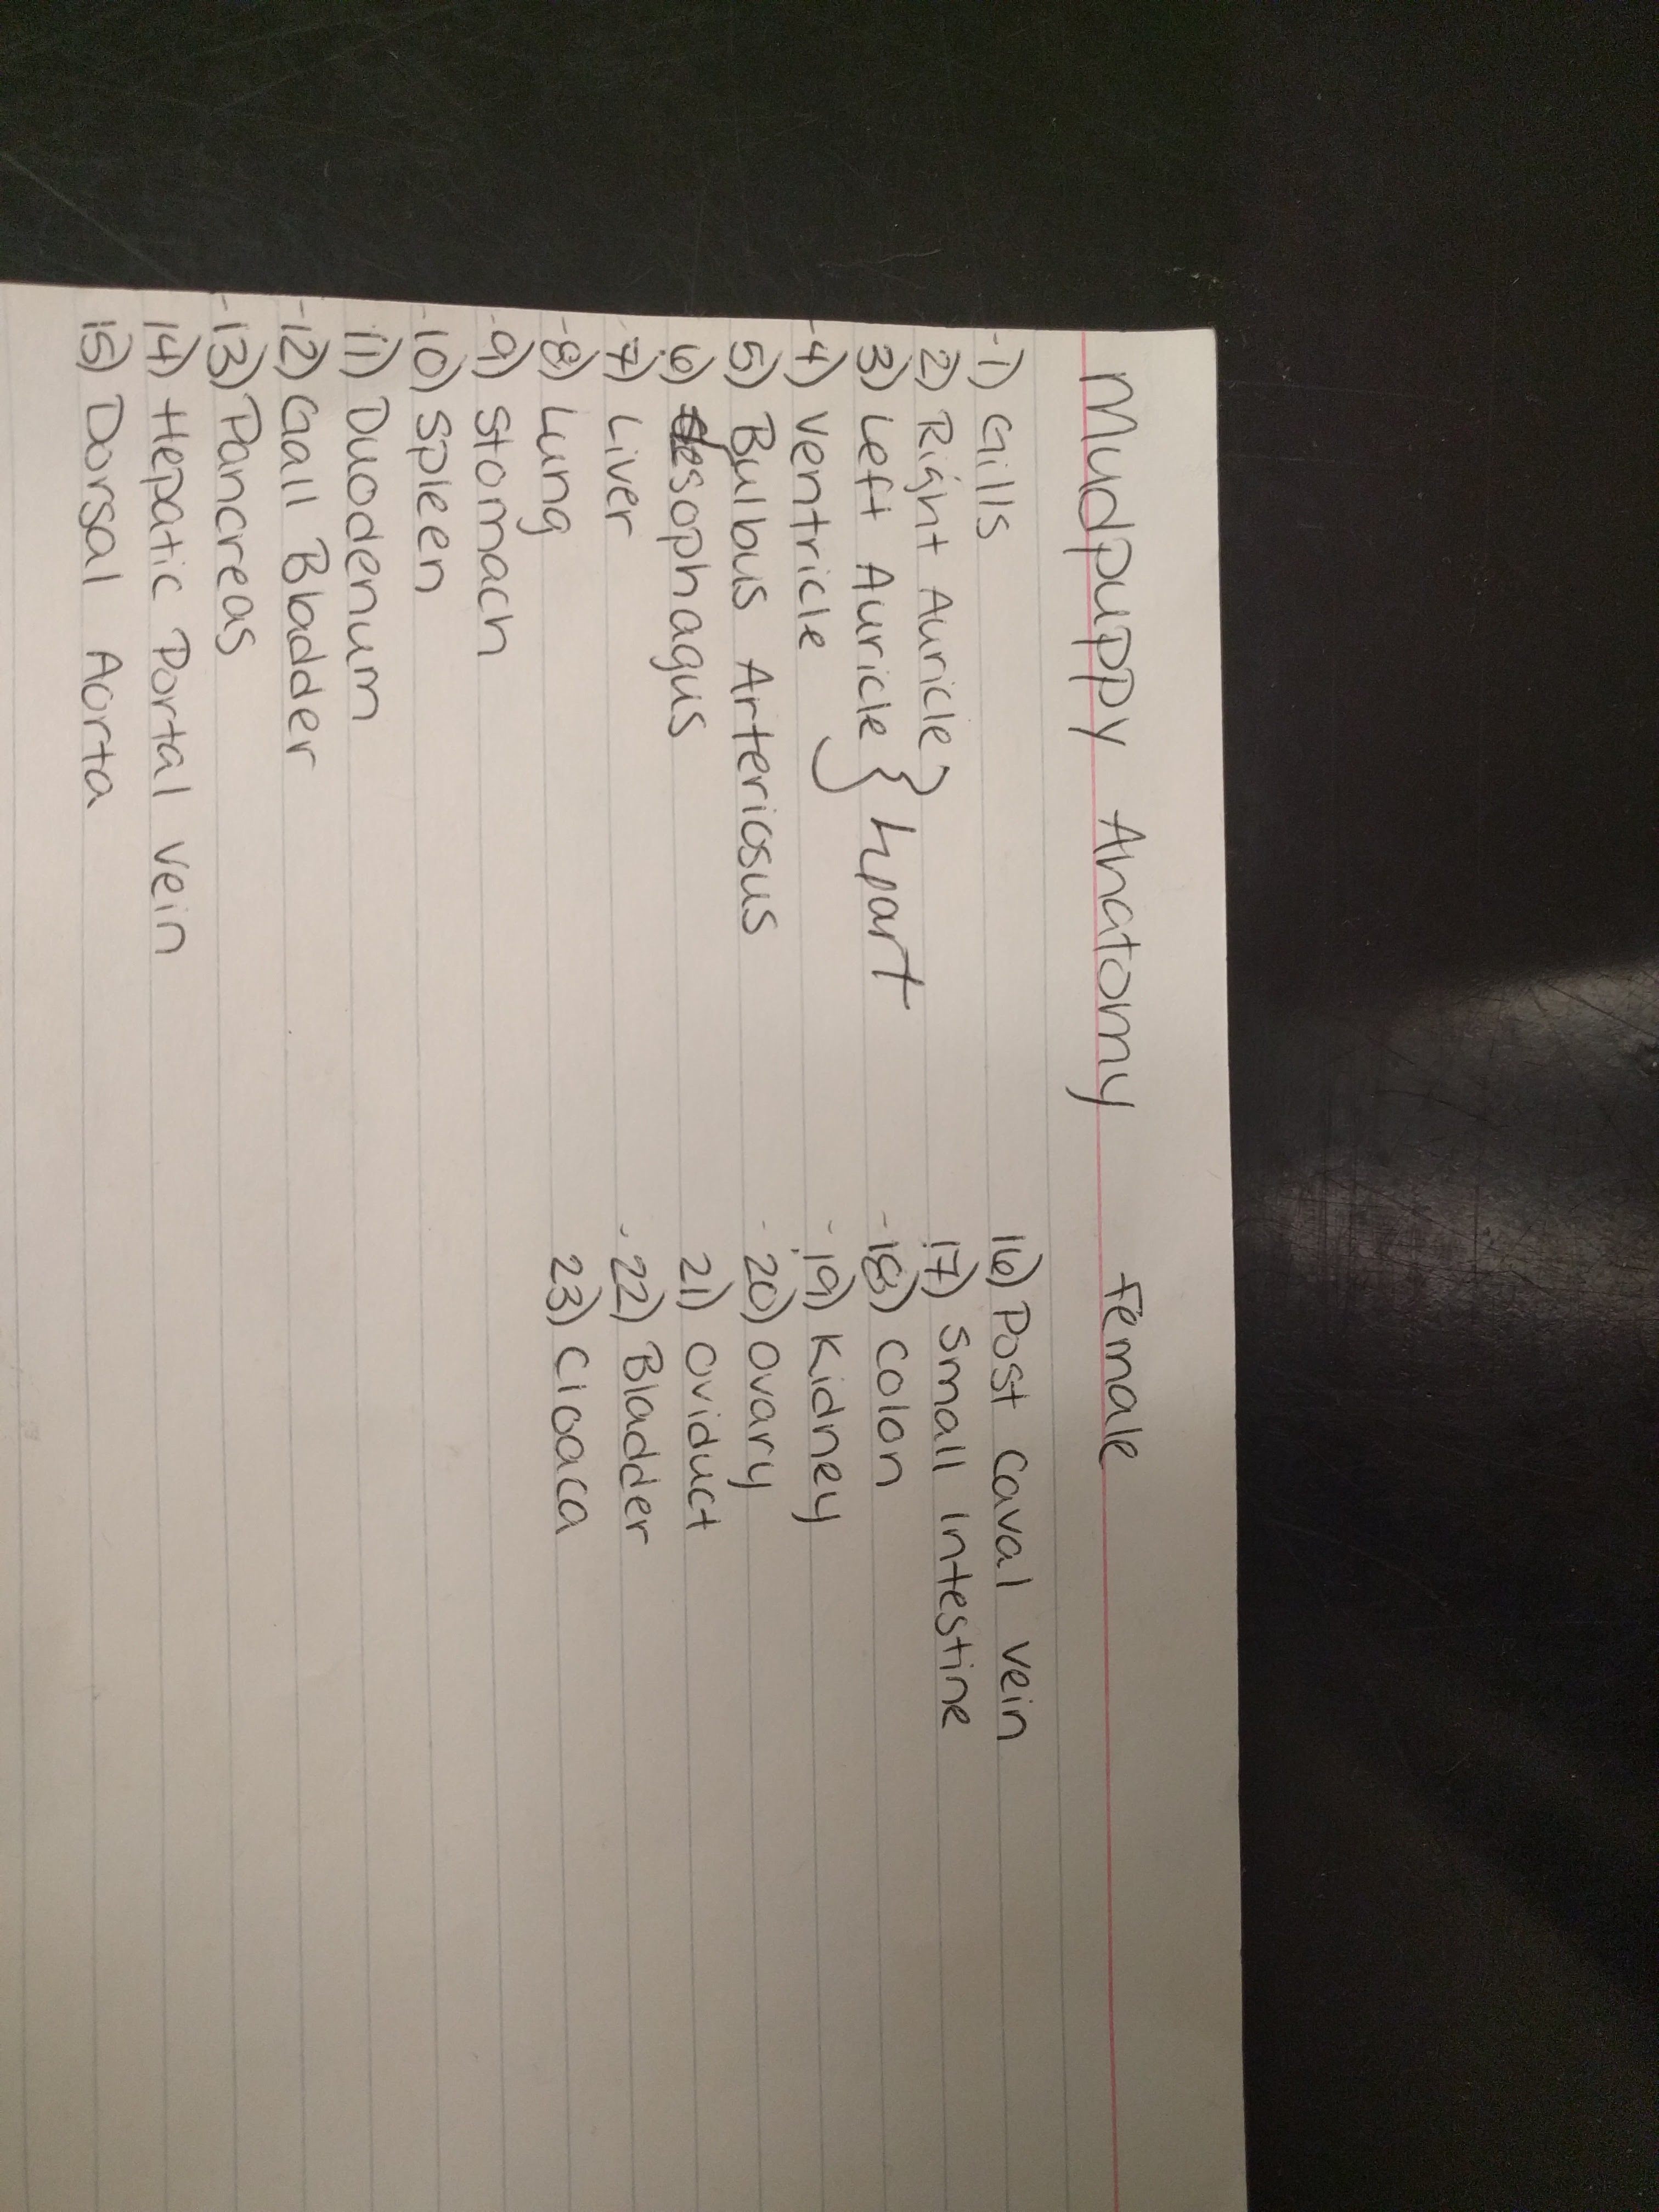 Mudpuppy Anatomy Female
-1) Gills
2) Right Auricle
3) Left Auricle } heart
-4) Ventricle
5) Bulbus Arteriosus
6) esophagus
-7) Liver
-8) Lung
-9) Stomach
-10) Spleen
11) Duodenum
-12) Gall Bladder
-13) Pancreas
14) Hepatic Portal vein
15) Dorsal Aorta
16) Post Caval vein
17) Small Intestine
-18) Colon
-19) Kidney
-20) Ovary
21) Oviduct
-22) Bladder
23) Cloaca